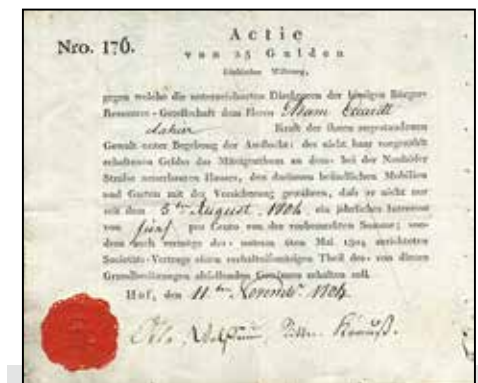 Nro. 176.
Actie
von 25 Gulden
fränkischer Währung,
gegen welche die unterzeichneten Direktoren der hiesigen Bürger-
Ressource-Gesellschaft dem Herrn Adam
dahier Kraft der ihnen zugestandenen
Gewalt unter Begebung der Ausflucht: des nicht baar vorgezählt
erhaltenen Geldes das Miteigenthum an dem bei der
Straße Hauses, den darinnen befindlichen Mobilien
und Garten mit der Versicherung gewähren, daß er nicht nur
seit dem 5ten August 1804 ein jährliches Interesse
von fünf pro Cento von der vorbemerkten Summe; son-
dern auch vermöge des unterm 6ten Mai errichteten
Societäts-Vertrags einen verhältnißmäßigen Theil des von diesen
Gewinnes erhalten soll.
Hof, den 11ten Novembr. 1804.